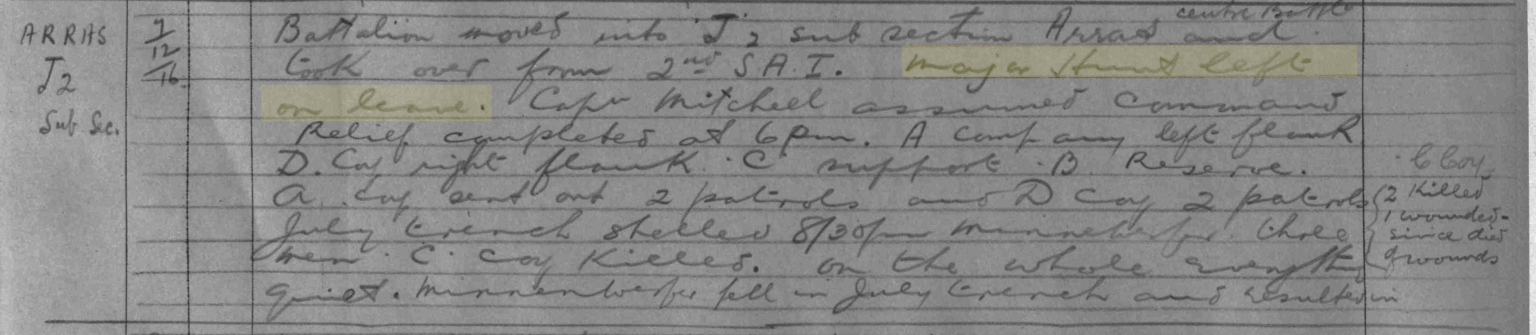 centre Battn
ARRAS 7/12/16 Battalion moved into J2 sub section Arras and
J2 took over from 2nd S.A.I. Major Hunt left
Sub Sec. on leave. Capt Mitchell assumed command
Relief completed at 6 pm. A company left flank
D. Coy right flank. C support. B. Reserve.
A. Coy sent out 2 patrols and D Coy 2 patrols
July trench shelled 8/30pm Minnenwerfer three
men C. Coy Killed. on the whole everything
quiet. Minnenwerfer fell in July trench and resulted in
C Coy.
2 Killed
1 wounded -
since died
of wounds